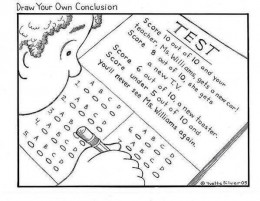 Draw Your Own Conclusion
TEST
Score 10 out of 10 and your
teacher, Ms. Williams, gets a new car!
Score 8 out of 10, she gets
a new T.V.
Score 6 out of 10, a new toaster.
Score under 5 out of 10 and
you'll never see Ms. Williams again.
1. A B C D
2. A B C D
3. A B C D
4. A B C D
5. A B C D
6. A B C D
A B C D
A B C D
A B C D